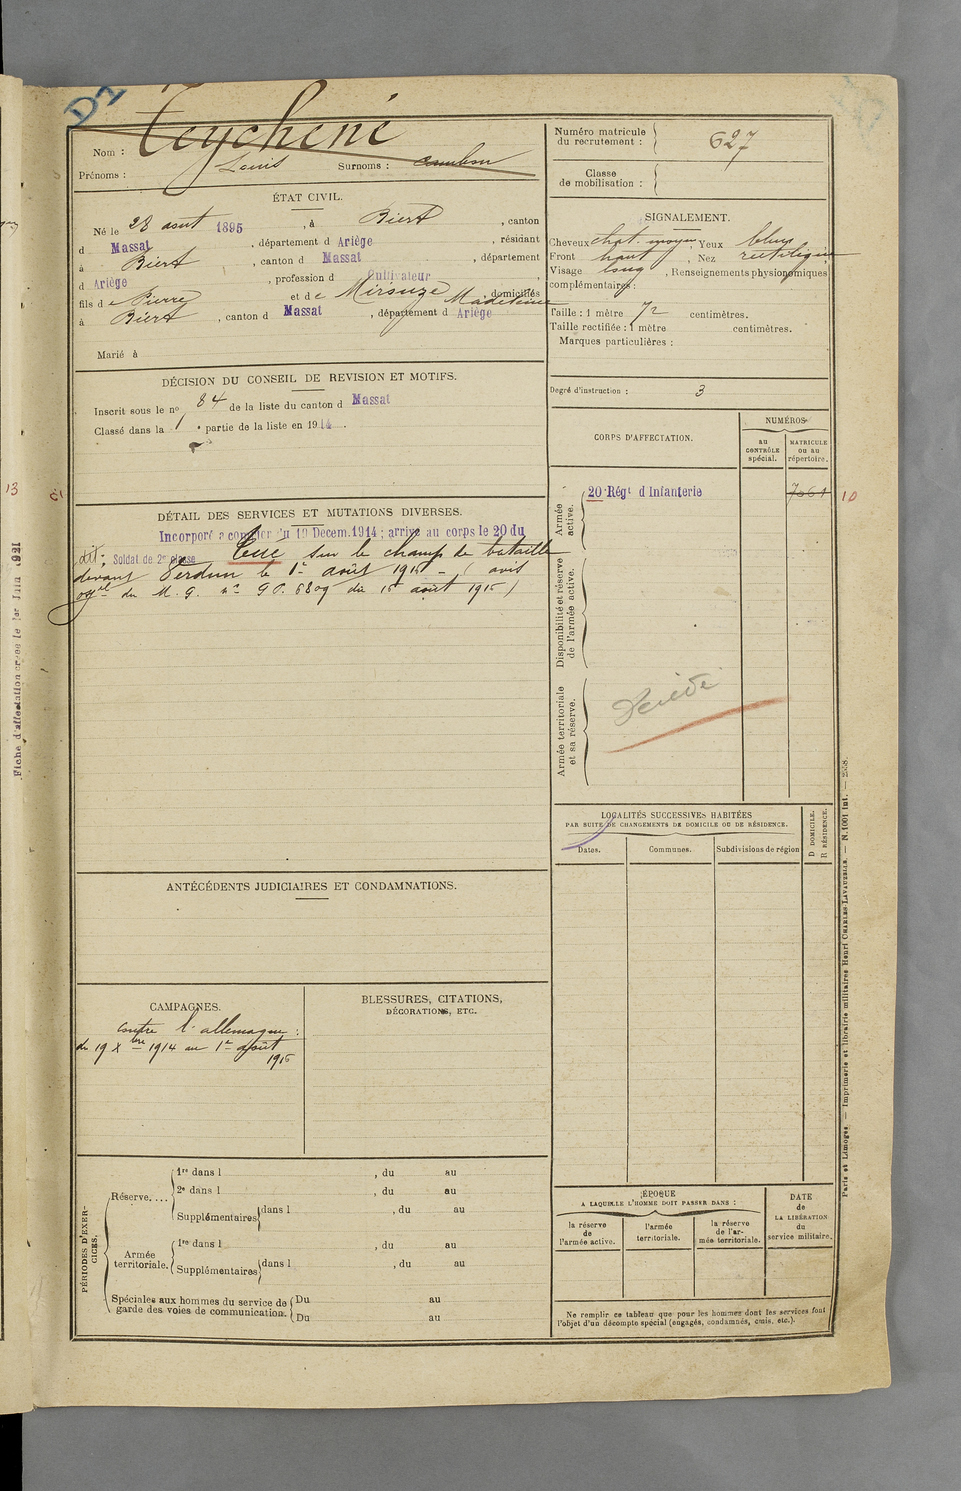 D2
Nom : Teychené
Prénoms : Louis Surnoms : Cambou
ÉTAT CIVIL.
Né le 28 août 1895, à Biert, canton
d Massat, département d Ariège, résidant
à Biert, canton d Massat, département
d Ariège, profession d Cultivateur,
fils de Pierre et de Mirouze Madeleine, domiciliés
à Biert, canton d Massat, département d Ariège
Marié à
DÉCISION DU CONSEIL DE REVISION ET MOTIFS.
Inscrit sous le no 84 de la liste du canton d Massat
Classé dans la 1 partie de la liste en 1914.
DÉTAIL DES SERVICES ET MUTATIONS DIVERSES.
Incorporé a compter du 19 Décem. 1914; arrivé au corps le 20 du
dit; Soldat de 2e classe Tué sur le champ de bataille
devant Verdun le 1er août 1916 - (avis
du M. G. no 6809 du 15 août 1916)
ANTÉCÉDENTS JUDICIAIRES ET CONDAMNATIONS.
CAMPAGNES.
contre l'allemagne :
du 19 Xbre 1914 au 1er août
1916
BLESSURES, CITATIONS,
DÉCORATIONS, ETC.
PÉRIODES D'EXERCICES.
Réserve....
1re dans l , du au
2e dans l , du au
Supplémentaires dans l , du au
Armée territoriale.
1re dans l , du au
Supplémentaires dans l , du au
Spéciales aux hommes du service de garde des voies de communication.
Du au
Du au
Numéro matricule du recrutement : 627
Classe de mobilisation :
SIGNALEMENT.
Cheveux chat. moyen, Yeux bleus
Front haut, Nez rectiligne
Visage long, Renseignements physionomiques
complémentaires :
Taille : 1 mètre 72 centimètres.
Taille rectifiée : 1 mètre centimètres.
Marques particulières :
Degré d'instruction : 3
CORPS D'AFFECTATION.
NUMÉROS
au CONTRÔLE spécial.
MATRICULE ou au répertoire.
Armée active.
20 Régt d'Infanterie 7061
Disponibilité et réserve de l'armée active.
Armée territoriale et sa réserve.
Décédé
LOCALITÉS SUCCESSIVES HABITÉES
PAR SUITE DE CHANGEMENTS DE DOMICILE OU DE RÉSIDENCE.
Dates. Communes. Subdivisions de région
D DOMICILE.
R RÉSIDENCE.
ÉPOQUE
A LAQUELLE L'HOMME DOIT PASSER DANS :
la réserve de l'armée active.
l'armée territoriale.
la réserve de l'armée territoriale.
DATE de LA LIBÉRATION du service militaire.
Ne remplir ce tableau que pour les hommes dont les services font
l'objet d'un décompte spécial (engagés, condamnés, omis, etc.).
13
10
Fiche d'affectation créée le 1er Juin 1921
Paris et Limoges. — Imprimerie et librairie militaires Henri CHARLES-LAVAUZELLE. — N. 1001 int. —